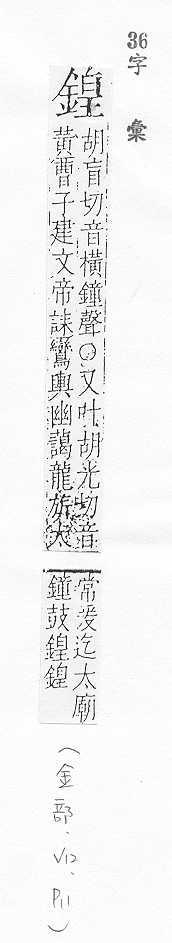 36
字彙
鍠
胡盲切音橫鐘聲○又叶胡光切音
黃曹子建文帝誄鸞輿幽藹龍旂太
常爰迄太廟
鐘鼓鍠鍠
(金部、V12、P11)